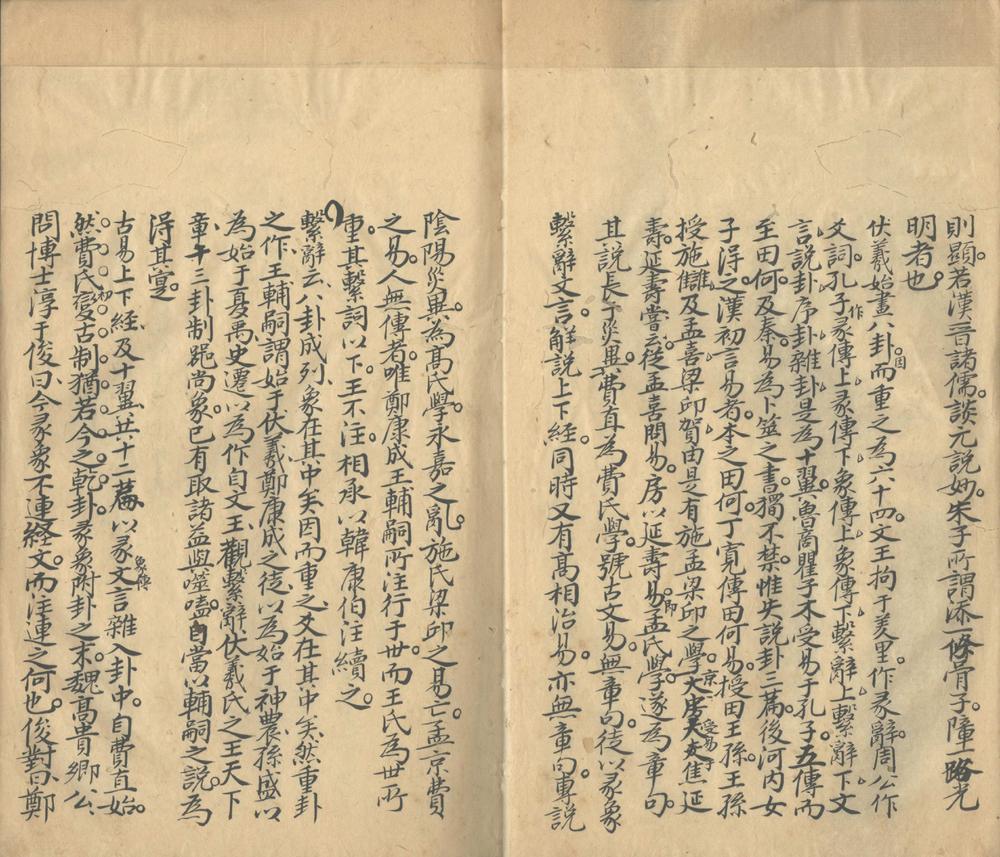 則顯若漢晉諸儒談元說妙朱子所謂添一條骨子障一路光
明者也
伏羲始畫八卦因而重之為六十四文王拘于羑里作彖辭周公作
爻詞孔子作彖傳上彖傳下象傳上象傳下繫辭上繫辭下文
言說卦序卦雜卦是為十翼魯商瞿子木受易于孔子五傳而
至田何及秦易為卜筮之書獨不禁惟失說卦三篇後河內女
子得之漢初言易者本之田何丁寬傳田何易授田王孫王孫
授施讎及孟喜梁邱賀由是有施孟梁邱之學京房受易焦延
壽延壽嘗云從孟喜問易房以延壽易即孟氏學遂為章句
其說長于災異費直為費氏學號古文易無章句徒以彖象
繫辭文言解說上下經同時又有高相治易亦無章句專說
陰陽災異為高氏學永嘉之亂施氏梁邱之易亡孟京費
之易人無傳者唯鄭康成王輔嗣所注行于世而王氏為世所
重其繫詞以下王不注相承以韓康伯注續之
繫辭云八卦成列象在其中矣因而重之爻在其中矣然重卦
之作王輔嗣謂始于伏羲鄭康成之徒以為始于神農孫盛以
為始于夏禹史遷以為作自文王觀繫辭伏羲氏之王天下
章十三卦制器尚象已有取諸益與噬嗑自當以輔嗣之說為
得其實
古易上下經及十翼共十二篇以彖象傳文言雜入卦中自費直始
然費氏初變古制猶若今之乾卦彖象附卦之末魏高貴鄉公
問博士淳于俊曰今彖象不連經文而注連之何也俊對曰鄭